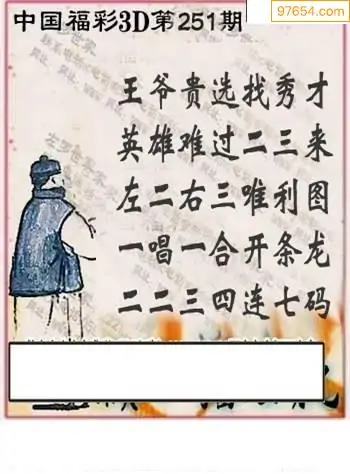 97654.com
中国福彩3D第251期
王爷贵选找秀才
英雄难过二三来
左二右三唯利图
一唱一合开条龙
二二三四连七码